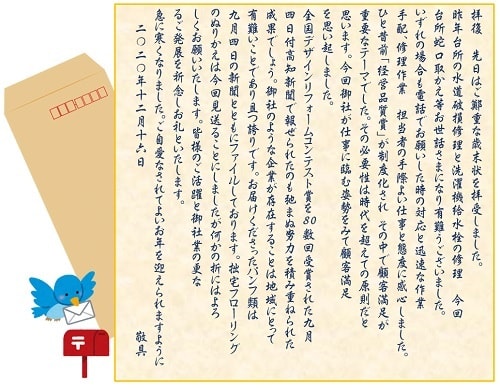 拝復　先日はご鄭重な歳末状を拝受しました。
昨年台所の水道破損修理と洗濯機給水栓の修理　今回
台所蛇口取かえ等お世話さまになり有難うございました。
いずれの場合も電話でお願いした時の対応と迅速な作業
手配、修理作業　担当者の手際よい仕事と態度に感心しました。
ひと昔前「経営品質賞」が制度化され　その中で顧客満足が
重要なテーマでした。その必要性は時代を超えての原則だと
思います。今回御社が仕事に臨む姿勢をみて顧客満足
を思い起しました。
全国デザインリフォームコンテスト賞を80数回受賞された九月
四日付高知新聞で報ぜられたのも弛まぬ努力を積み重ねられた
成果でしょう。御社のような企業が存在することは地域にとって
有難いことであり且つ誇りです。お届けくださったパンフ類は
九月四日の新聞とともにファイルしております。拙宅フローリング
のぬりかえは今回見送ることにしましたが何かの折にはよろ
しくお願いいたします。皆様のご活躍と御社業の更な
るご発展を祈念しお礼といたします。
急に寒くなりました。ご自愛なされてよいお年を迎えられますように
二〇二〇年十二月十六日　　　敬具
〒